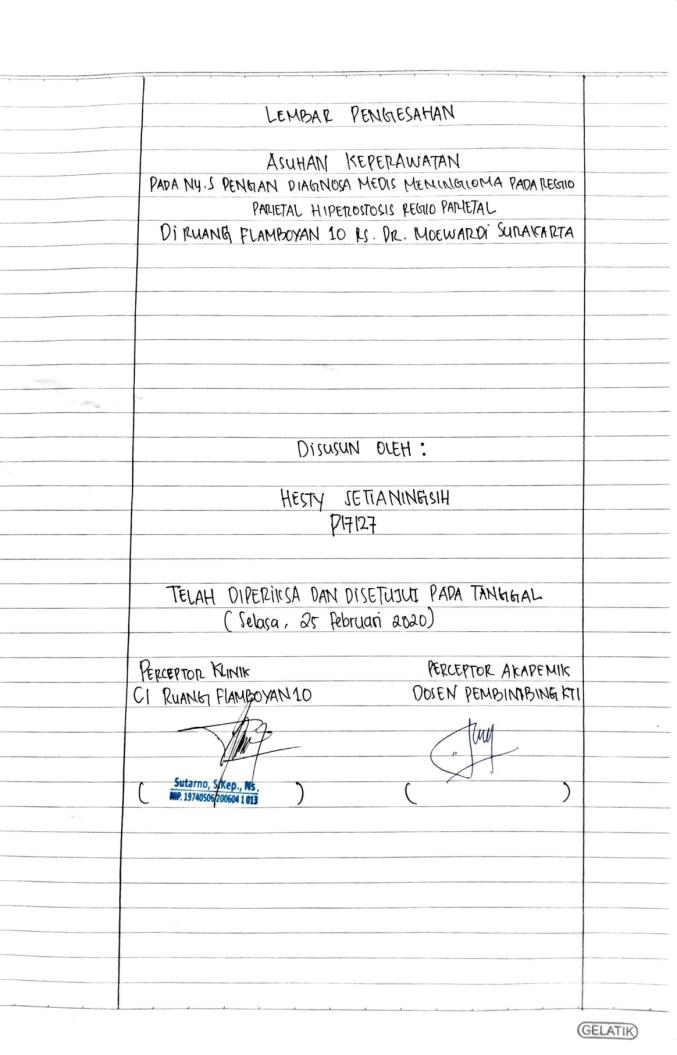 LEMBAR PENGESAHAN
ASUHAN KEPERAWATAN
PADA NY.S DENGAN DIAGNOSA MEDIS MENINGIOMA PADA REGIO
PARIETAL HIPEROSTOSIS REGIO PARIETAL
Di RUANG FLAMBOYAN 10 RS. DR. MOEWARDI SURAKARTA
DISUSUN OLEH :
HESTY SETIANINGSIH
P17127
TELAH DIPERIKSA DAN DISETUJUI PADA TANGGAL
(Selasa, 25 Februari 2020)
PERCEPTOR KLINIK PERCEPTOR AKADEMIK
CI RUANG FLAMBOYAN 10 DOSEN PEMBIMBING KTI
Sutarno, S.Kep., Ns.
NIP. 19740506 200604 1 013
( ) ( )
GELATIK